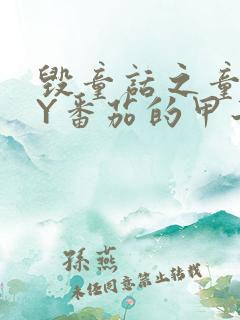 毁童话之童
Y番茄的甲
孫燕
未经同意禁止转载